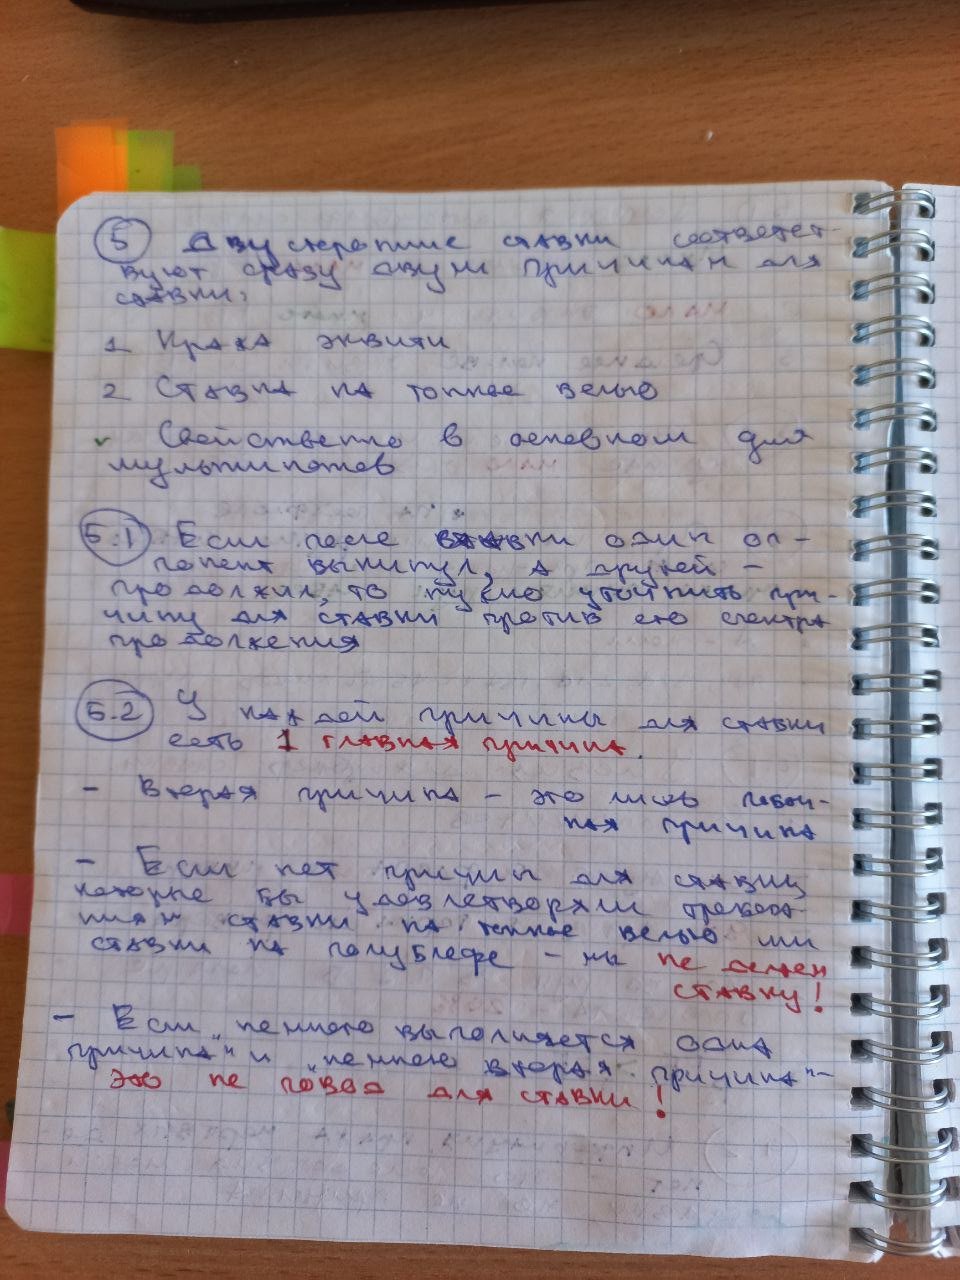 5 Двусторонние ставки соответст-
вуют сразу двум причинам для
ставки:
1 Кража эквити
2 Ставка на тонкое велью
✓ Свойственно в основном для
мультипотов
5.1 Если после ставки один оп-
понент выкинул, а другой -
продолжил, то нужно уточнить при-
чину для ставки против его спектра
продолжения
5.2 У каждой причины для ставки
есть 1 главная причина.
- Вторая причина - это лишь побоч-
ная причина
- Если нет причин для ставки,
которые бы удовлетворяли требова-
ниям ставки на тонкое велью или
ставки на полублефе - мы не делаем
ставку!
- Если "немного выполняется одна
причина" и "немного вторая причина" -
это не повод для ставки!